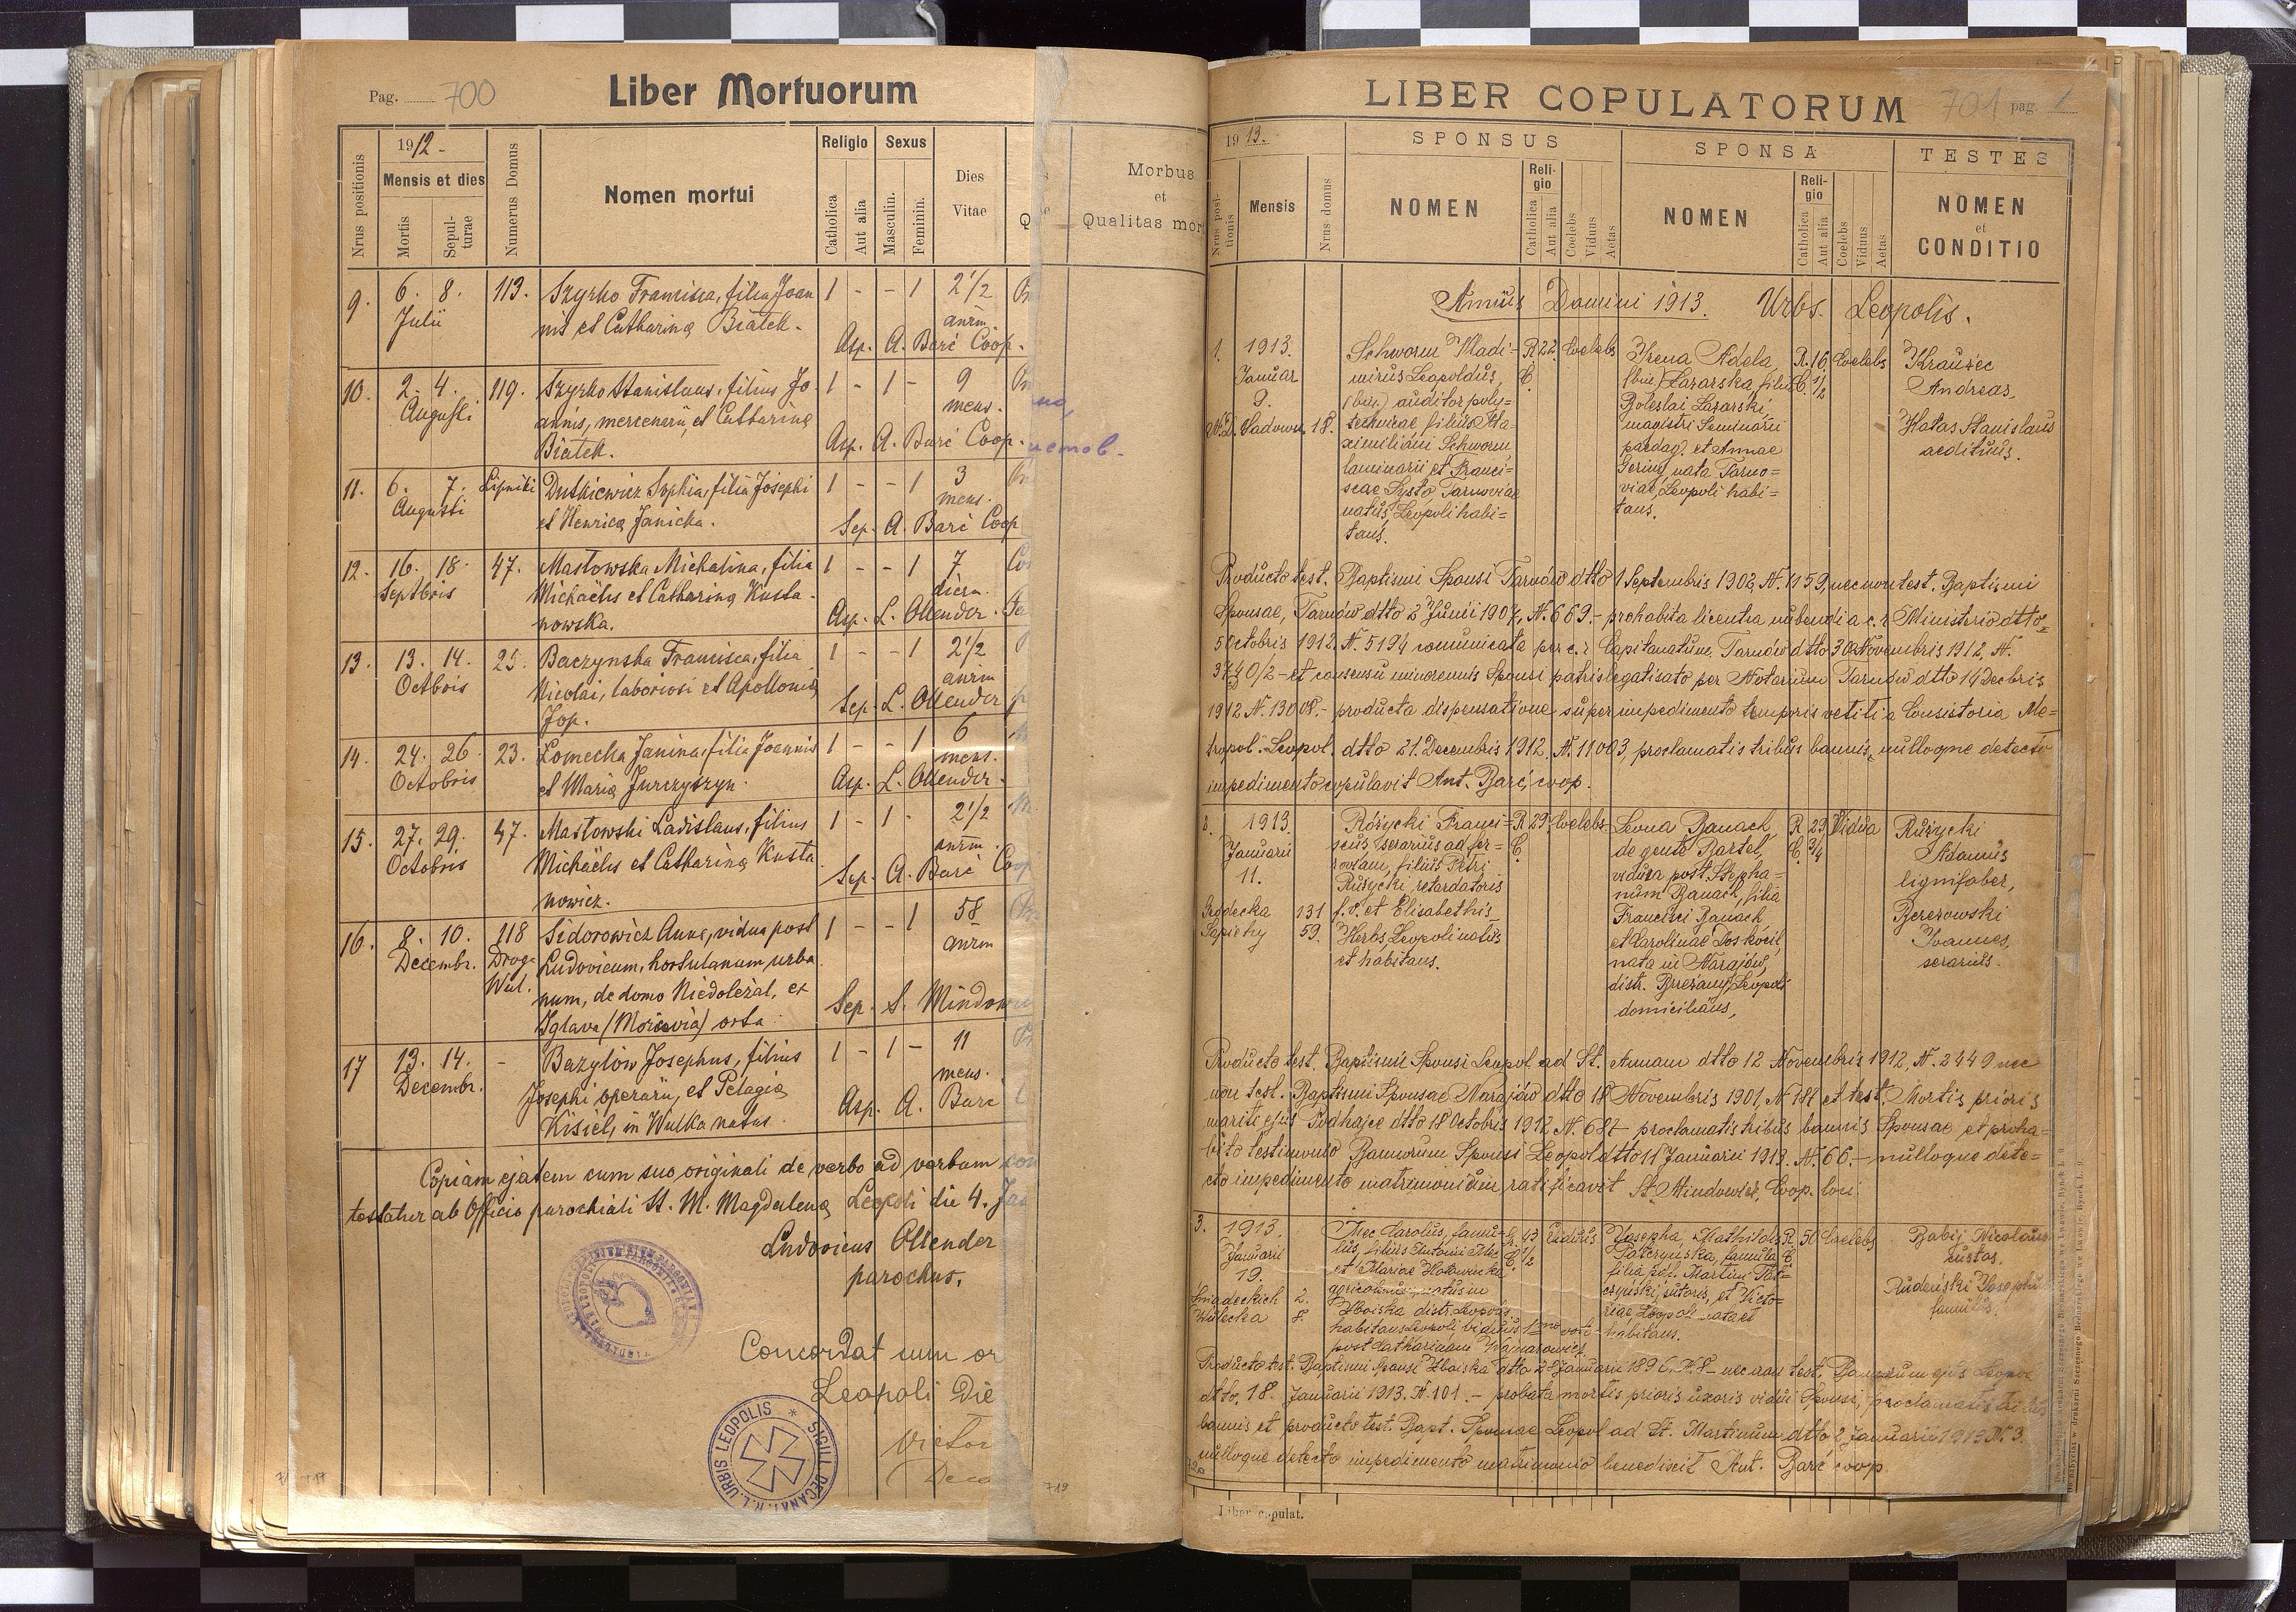 Pag. 700
Liber Mortuorum
Nrus positionis
1912
Mensis et dies
Mortis
Sepulturae
Numerus Domus
Nomen mortui
Religio
Catholica
Aut alia
Sexus
Masculin.
Feminin.
Dies Vitae
Morbus
et
Qualitas mor
9. 6. 8. Julii 113. Szyrko Francisca, filia Joan 1 - - 1 2 1/2 anrm
nis et Catharina Białek.
Asp. A. Barć Coop.
10. 2. 4. Augusti 119. Szyrko Stanislaus, filius Jo 1 - 1 - 9 mens.
annis, mercenerii, et Catharina
Białek.
Asp. A. Barć Coop.
11. 6. 7. Augusti Lipniki Dutkiewicz Sophia, filia Josephi 1 - - 1 3 mens.
et Henrica Janicka.
Sep. A. Barć Coop
12. 16. 18. Septbris 47. Masłowska Michalina, filia 1 - - 1 7 dierm
Michaëlis et Catharina Kusta-
nowska.
Asp. L. Ollender.
13. 13. 14. Octbris 25. Baczynska Francisca, filia 1 - - 1 2 1/2 anrm
Nicolai, laboriosi et Apollonia
Jop.
Sep. L. Ollender
14. 24. 26. Octobris 23. Łomecha Janina, filia Joannis 1 - - 1 6 mens.
et Maria Jurczyszyn.
Asp. L. Ollender.
15. 27. 29. Octobris 47. Masłowski Ladislaus, filius 1 - 1 - 2 1/2 anrm.
Michaëlis et Catharina Kusta
nowicz.
Sep. A. Barć Coop
16. 8. 10. Decembr. 118 Droga Wul. Sidorowicz Anna, vidua post 1 - - 1 58 anrm
Ludovicum, hortulanum urba
num, de domo Niedoleżal, ex
Iglava (Moravia) orta.
Sep. S. Mindow
17 13. 14. Decembr. - Bazylów Josephus, filius 1 - 1 - 11 mens.
Josephi operarii, et Pelagia
Kisiel, in Wulka natus.
Asp. A. Barć
Copiam ejatem cum suo originali de verbo ad verbum con
testatur ab Officio parochiali St. M. Magdalena Leopoli die 4. Jan
Ludovicus Ollender
parochus.
Concordat cum or
Leopoli die
Victor
Deca
SIGILL. DECANAT. R. L. URBIS LEOPOLIS
719
LIBER COPULATORUM
701 pag. 1
1913.
Nrus positionis
Mensis
Nrus domus
SPONSUS
NOMEN
Religio
Catholica
Aut alia
Coelebs
Viduus
Aetas
SPONSA
NOMEN
Religio
Catholica
Aut alia
Coelebs
Viduus
Aetas
TESTES
NOMEN
et
CONDITIO
Annus Domini 1913. Urbs. Leopolis.
1. 1913. Januar 9. Sadown. 18.
Schworm Wladi-
mirus Leopoldus,
(bin.) auditor poly-
technicae filius Ma-
ximiliani Schworm
laminarii et Franci-
scae Systo Tarnoviae
natus, Leopoli habi-
tans.
R. C. 22. Coelebs
Irena Adela,
(bin.) Lazarska, filia
Boleslai Lazarski,
magistri Seminarii
paedag. et Annae
Gering nata Tarno-
viae, Leopoli habi-
tans.
R. C. 16 1/2 Coelebs
Krauzec
Andreas,
Hatas Stanislaus
aedituus.
Producto test. Baptismi Sponsi Tarnów dtto 1 Septembris 1902, N. 1159, nec non test. Baptismi
Sponsae, Tarnów dtto 2 Junii 1907, N. 669.- prohabita licentia nubendi a c. r. Ministerio dtto
5 Octobris 1912. N. 5194 communicata per c. r. Capitanatum Tarnów dtto 30 Novembris 1912, N.
3740/2 - et consensu minorennis Sponsi patris legatisato per Notarium Tarnów dtto 14 Decbris
1912 N. 13008.- producta dispensatione super impedimento temporis vetiti a Consistoria Me-
tropol. Leopol. dtto 21. Decembris 1912. N. 11003, proclamatis tribus bannis, nulloque detecto
impedimento copulavit Ant. Barć, coop.
2. 1913. Januarii 11.
Grodecka 131
Sapiehy 59.
Różycki Franci-
scus, serarius ad fer-
roviam, filius Petri
Różycki, retardatoris
f. v. et Elisabethis
Herbs, Leopoli natus
et habitans.
R. C. 29. Coelebs
Leona Banach
de gente Bartel,
vidua post Stepha-
num Banach, filia
Francisci Banach
et Carolinae Doskocil,
nata in Narajów,
distr. Brzeżany, Leopoli
domicilians,
R. C. 29 3/4 Vidua
Różycki
Adamus
lignifaber,
Berezowski
Ioannes,
serarius.
Producto test. Baptismi Sponsi Leopol ad St. Annam dtto 12 Novembris 1912, N. 2449 nec
non test. Baptismi Sponsae Narajów dtto 18 Novembris 1901, N 187 et test. Mortis prioris
mariti ejus Podhajce dtto 18 Octobris 1912 N. 687 - proclamatis tribus bannis Sponsae et proha-
bito testimonio Bannorum Sponsi Leopol dtto 11 Januarii 1913. N. 66.- nulloque dete-
cto impedimento matrimonium ratificavit St. Mindowicz, Coop. loci
3. 1913. Januarii 19.
Śniadeckich 2.
Wulecka 8.
Mec Carolus, famu-
lus, filius Antonii Mec
et Mariae Hołowicka
agricolarum, natus in
Zboiska distr. Leopolis,
habitans Leopoli viduus 1mo voto
post Catharinam Wojnarowicz
R. C. 43 1/2 Viduus
Josepha, Mathilda
Parczyńska, famula
filia p.d. Martini Par-
czyński, sutoris, et Victo-
riae, Leopoli nata et
habitans.
R. C. 50 Coelebs
Babij Nicolaus
custos.
Rudeński Josephus
famulus.
Producto test. Baptismi Sponsi Zboiska dtto 28 Januarii 1896, N. 8 - nec non test. Bannorum ejus Leopol
dtto. 18. Januarii 1913, N. 101.- probata mortis prioris uxoris vidui Sponsi, proclamatis tribus
bannis et producto test. Bapt. Sponsae Leopol ad St. Martinum dtto 2 Januarii 1913 N. 3.
nulloque detecto impedimento matrimonio benedixit Ant. Barć coop
Liber copulat.